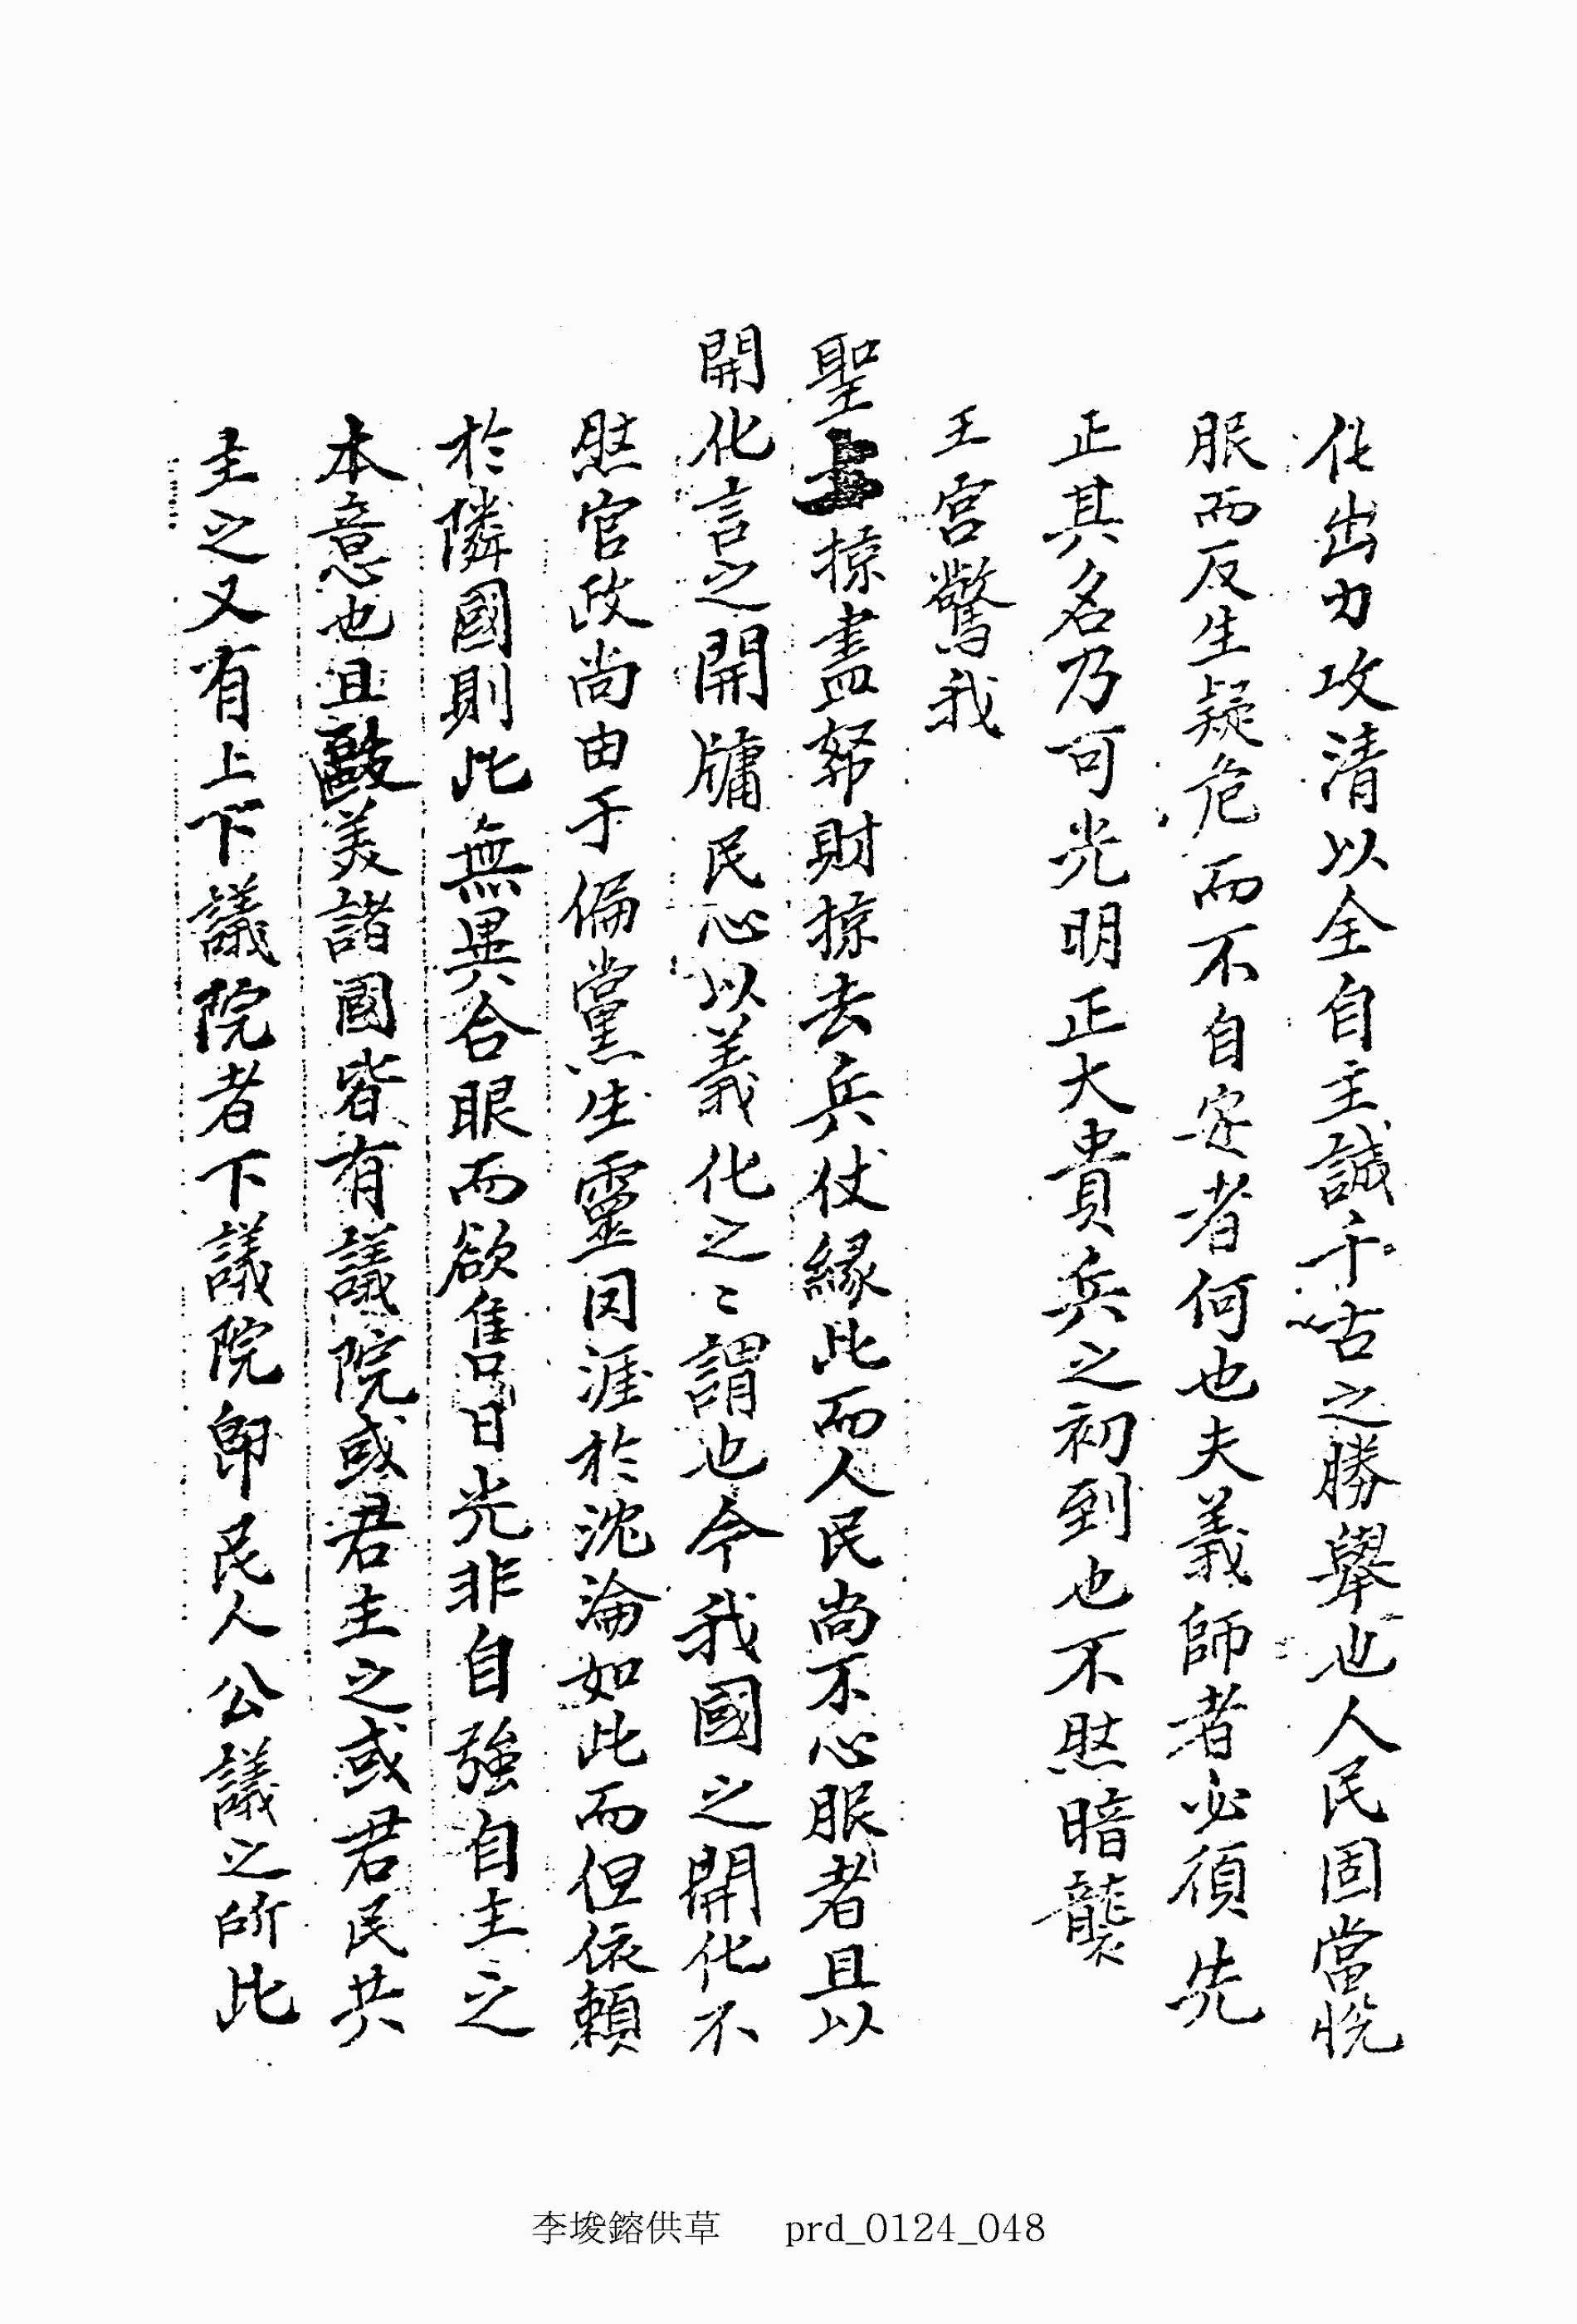 化出力攻清以全自主誠千古之勝擧也人民固當悅
服而反生疑危而不自安者何也夫義師者必須先
正其名乃可光明正大貴兵之初到也不然暗襲
王宮驚我
聖上掠盡帑財掠去兵仗緣此而人民尚不心服者且以
開化言之開牖民心以義化之〻謂也今我國之開化不
然官政尚由于偏黨生靈因涯於沈淪如此而但依賴
於隣國則此無異合眼而欲售日光非自強自主之
本意也且歐美諸國皆有議院或君主之或君民共
主之又有上下議院者下議院卽民人公議之所此
李埈鎔供草 prd_0124_048